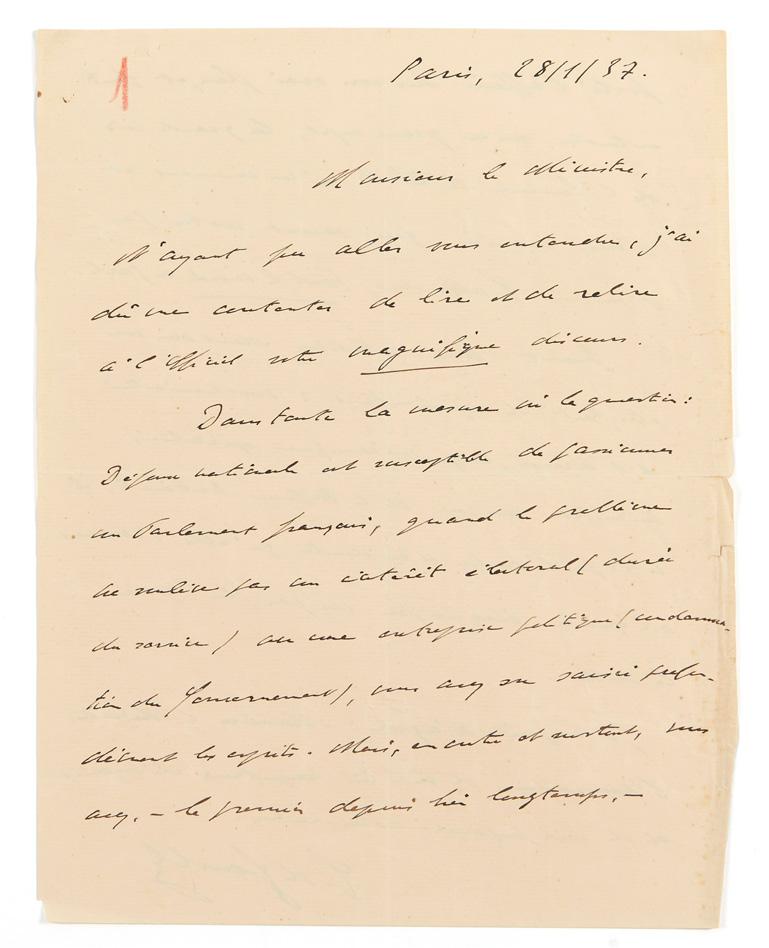 1
Paris, 28/1/37.
Monsieur le Ministre,
N'ayant pu aller vous entendre, j'ai
dû me contenter de lire et de relire
à l'Officiel votre magnifique discours.
Dans toute la mesure où la question :
Défense nationale est susceptible de passionner
un Parlement français, quand le problème
ne soulève pas un intérêt électoral (durée
du service) ou une entreprise politique (condamna-
tion du Gouvernement), vous avez su saisir profon-
dément les esprits. Mais, en outre et surtout, vous
avez, – le premier depuis bien longtemps, –